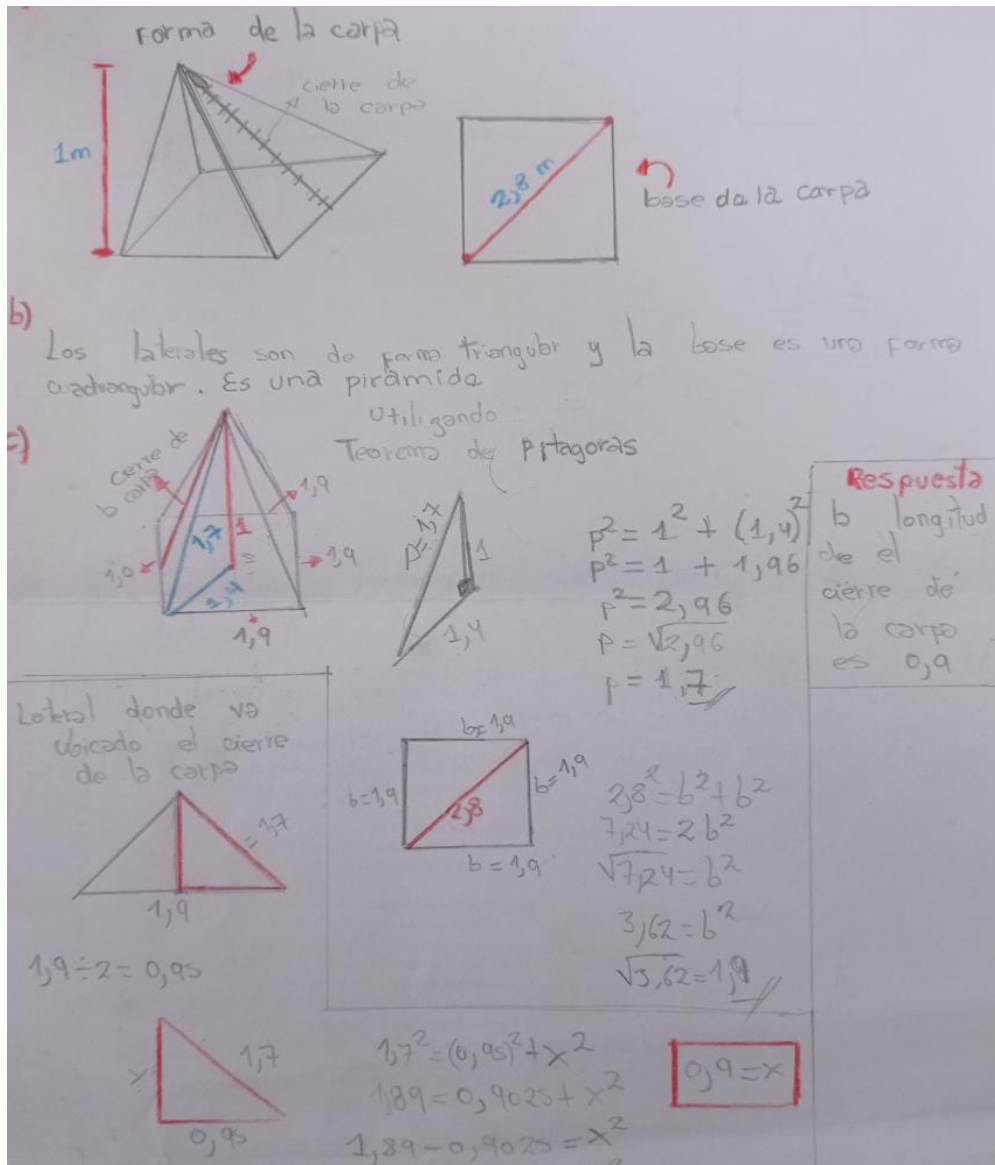 Forma de la carpa
cierre de
la carpa
1m
2,8 m
base da la carpa
b)
Los laterales son de forma triangular y la base es una forma
cuadrangular. Es una pirámide
c)
utiligando
Teorema de Pitagoras
cierre de
la carpa
1,7
1
1,4
1,9
1,9
1,9
1,9
p=1,7
1
1,4
p²=1²+(1,4)²
p²=1+1,96
p²=2,96
p=√2,96
p=1,7
Respuesta
la longitud
de el
cierre de
la carpa
es 0,9
Lateral donde va
ubicado el cierre
de la carpa
=1,7
1,9
1,9÷2=0,95
b=1,9
b=1,9
b=1,9
2,8
b=1,9
2,8²=b²+b²
7,24=2b²
√7,24=b²
3,62=b²
√3,62=1,9
x
1,7
0,95
1,7²=(0,95)²+x²
1,89=0,9025+x²
1,89-0,9025=x²
0,9=x